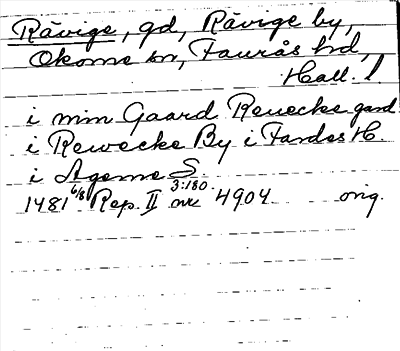 Rävige, gd, Rävige by,
Okome sn, Faurås hd,
Hall. l.
i min Gaard Reuecke gard
i Rewecke By i Fardes H.
i Ageme S
1481 6/8 Rep. II 3:180 nr 4904 orig.